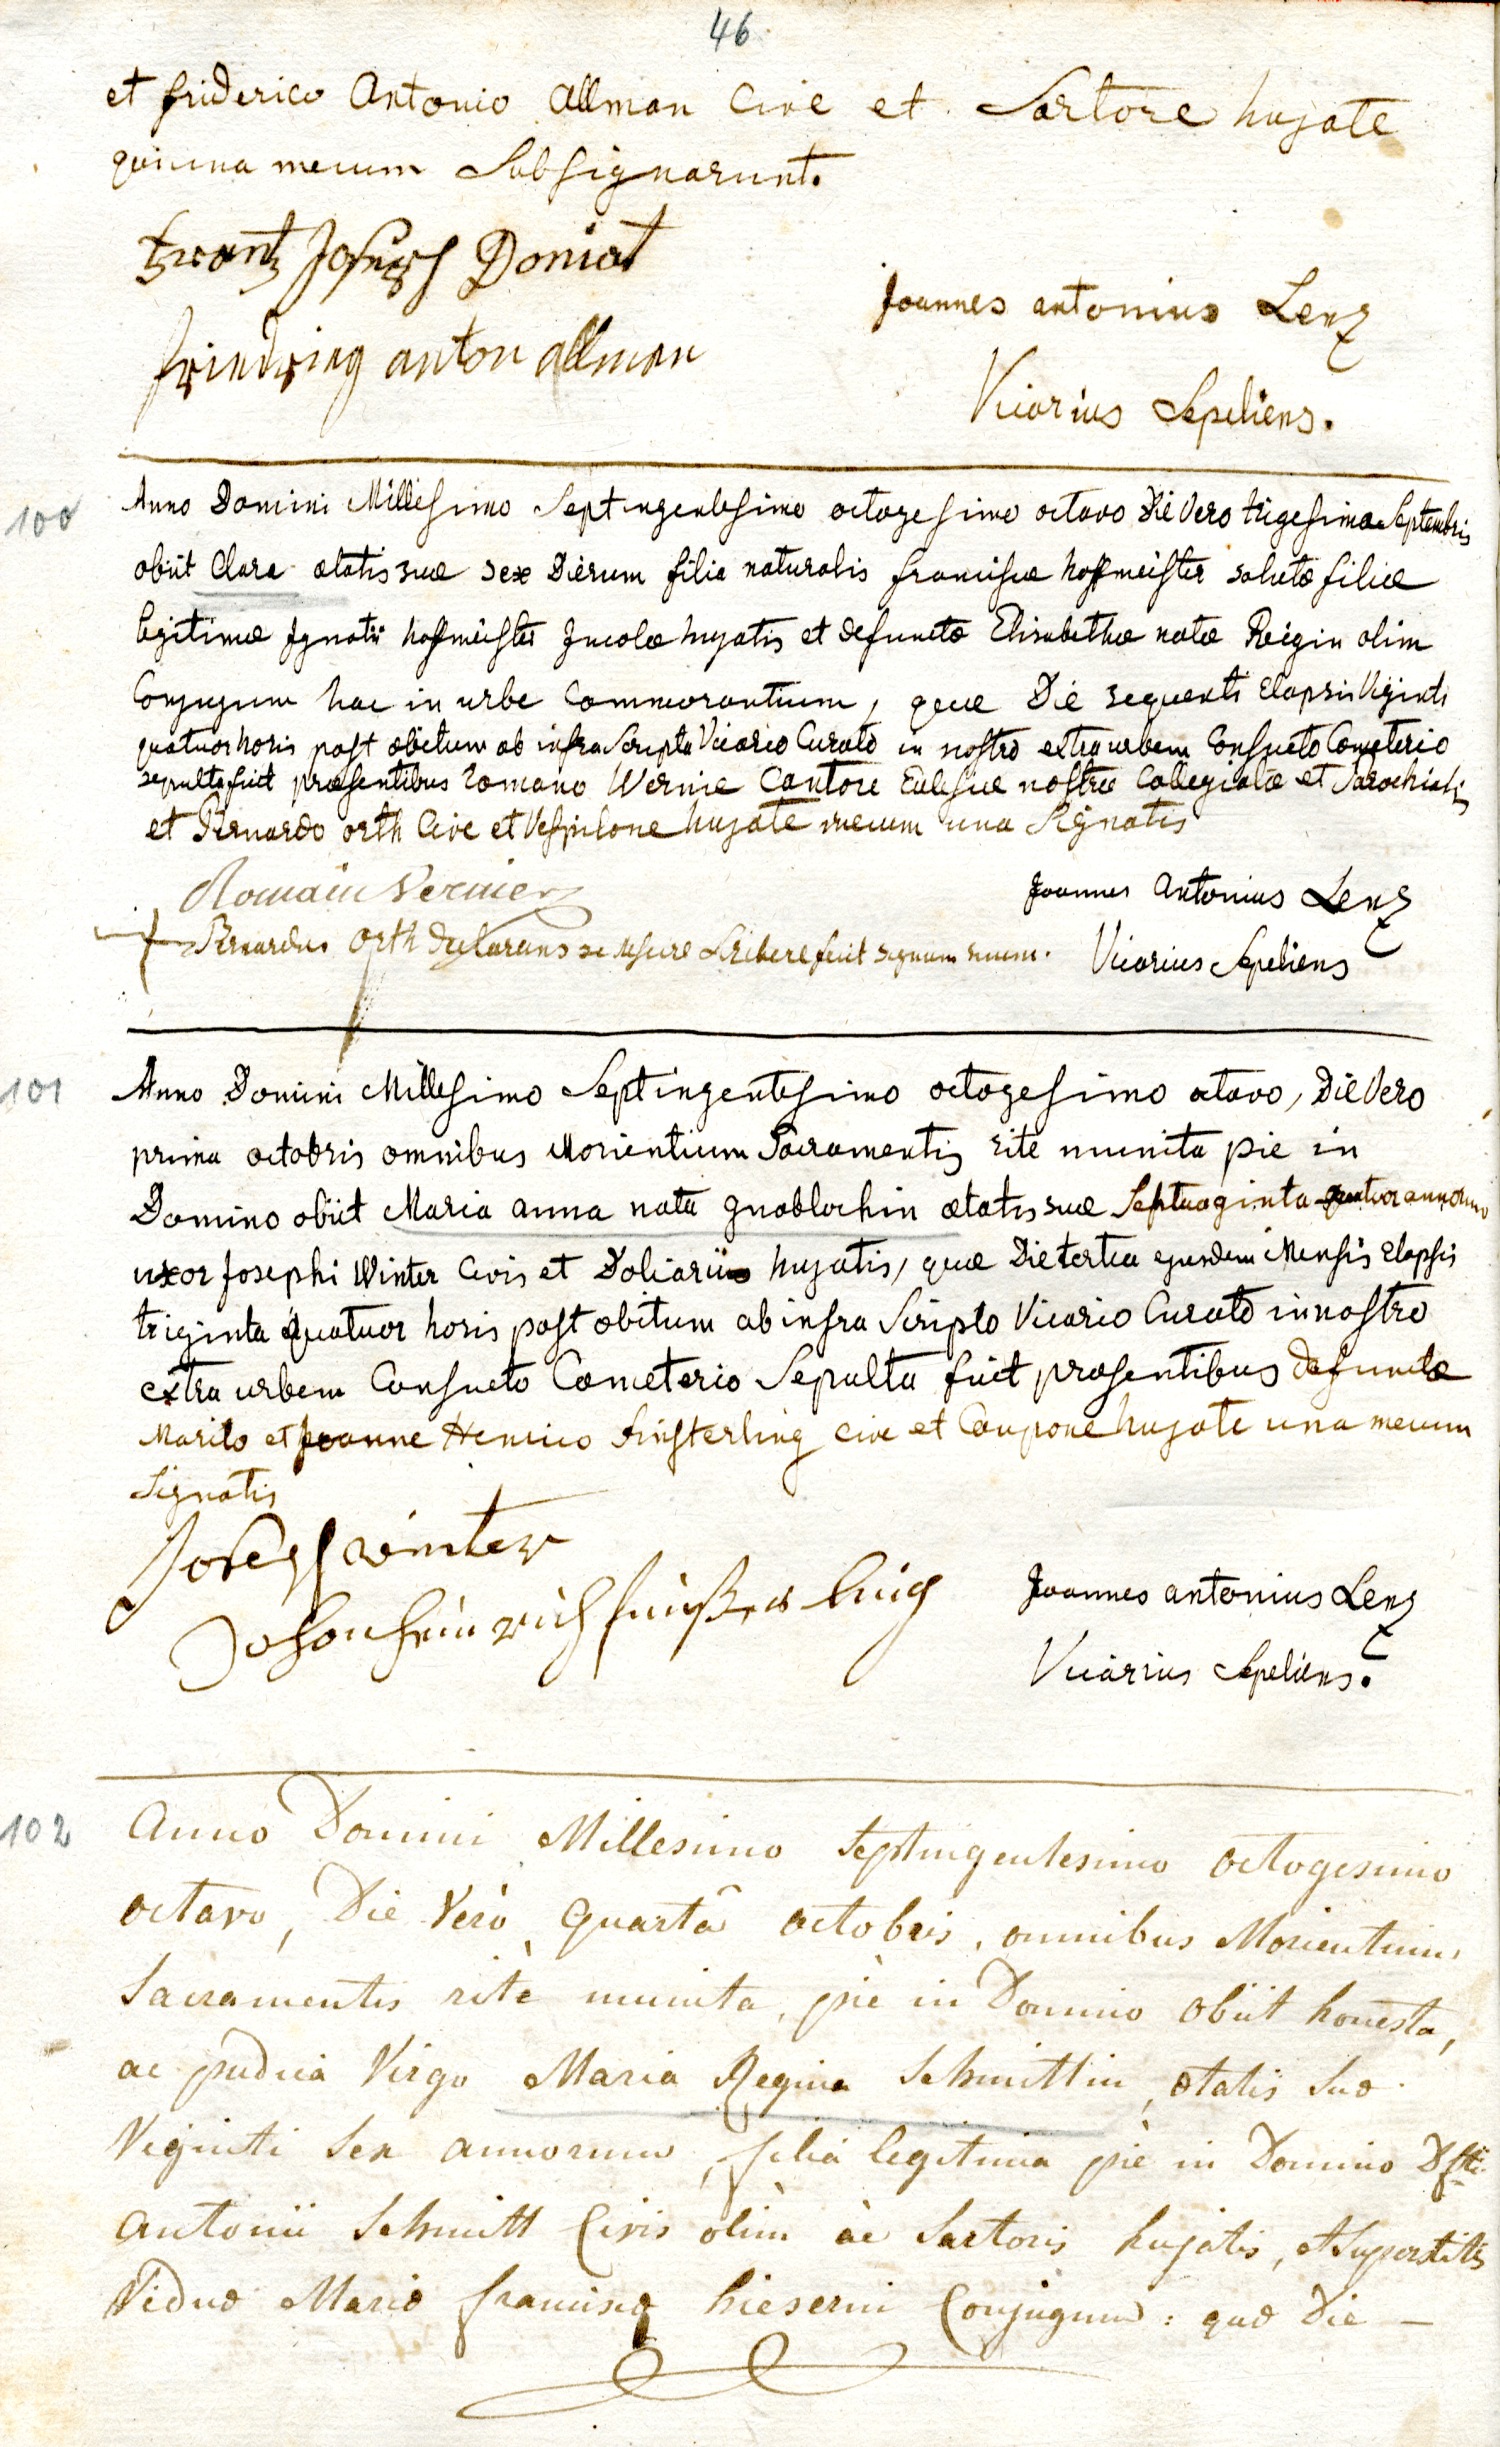 46
et friderico Antonio Allman Cive et Sartore hujate
qui una mecum Subsignarunt.
frantz Joseph Doniat
friedrich anton allman
Joannes antonius Lenz
Vicarius Sepeliens.
100
Anno Domini Millesimo Septingentesimo octogesimo octavo Die Vero trigesima Septembris
obiit Clara ætatis suæ sex Dierum filia naturalis franciscæ hoffmeister solutæ filiæ
legitimæ Ignatii hoffmeister Incolæ hujatis et defunctæ Elisabethæ natæ Reigin olim
Conjugum hac in urbe Commorantium, quæ Die sequenti Elapsis Viginti
quatuor horis post obitum ab infra Scripto Vicario Curato in nostro extra urbem Consueto Cometerio
sepulta fuit præsentibus Romano Wernie Cantore Eclesiæ nostræ Collegiatæ et Parochialis
et Bernardo orth Cive et Vespilone hujate mecum una Signatis
Romain Vernier
Bernardus Orth declarans se nescire Scribere fecit signum suum.
Joannes Antonius Lenz
Vicarius Sepeliens
101
Anno Domini Millesimo Septingentesimo octogesimo octavo, Die Vero
prima octobris omnibus Morientium Sacramentis rite munita pie in
Domino obiit Maria anna nata gnoblochin ætatis suæ Septuaginta quatuor annorum
uxor Josephi Winter Civis et Doliarii hujatis, quæ Die tertia ejusdem Mensis Elapsis
triginta quatuor horis post obitum ab infra Scripto Vicario Curato in nostro
extra urbem Consueto Cometerio Sepulta fuit præsentibus defunctæ
Marito et Joanne Henrico finsterling cive et Caupone hujate una mecum
Signatis
Joseph winter
Johan heinrich finsterling
Joannes antonius Lenz
Vicarius Sepeliens.
102
Anno Domini Millesimo Septingentesimo octogesimo
octavo, Die Verò Quartâ octobris, omnibus Morientium
Sacramentis ritè munita, piè in Domino obiit honesta,
ac pudica Virgo Maria Regina Schmittin, ætatis suæ
Viginti Sex annorum, filia legitima piè in Domino Dfti
Antonii Schmitt Civis olim ac Sartoris hujatis, et Superstitis
Viduæ Mariæ franciscæ hieserin Conjugum: quæ Die –